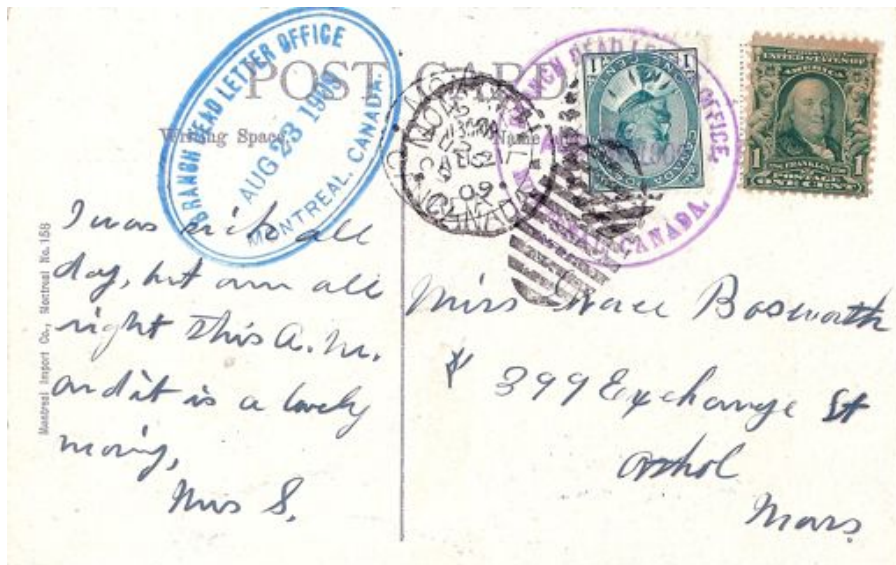 POST CARD
Writing Space
Name
BRANCH DEAD LETTER OFFICE
AUG 23 1909
MONTREAL, CANADA.
BRANCH DEAD LETTER OFFICE,
MONTREAL, CANADA.
CANADA
09
ONE CENT
1
1
UNITED STATES OF
AMERICA
1
FRANKLIN
1
POSTAGE
ONE CENT
Montreal Import Co., Montreal No. 158
I was sick all
day, but am all
right this A. M.
and it is a lovely
morning,
Mrs S.
Miss Grace Bosworth
399 Exchange St
Athol
Mass